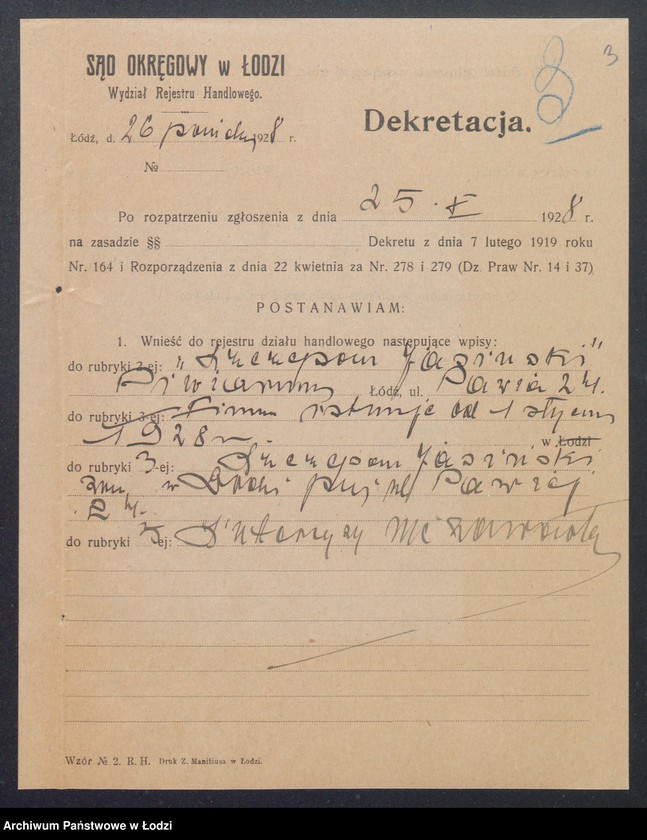 3
SĄD OKRĘGOWY w ŁODZI
Wydział Rejestru Handlowego.
Dekretacja.
Łódź, d. 26 1928 r.
№
Po rozpatrzeniu zgłoszenia z dnia 25. X 1928 r.
na zasadzie §§ Dekretu z dnia 7 lutego 1919 roku
Nr. 164 i Rozporządzenia z dnia 22 kwietnia za Nr. 278 i 279 (Dz. Praw Nr. 14 i 37)
POSTANAWIAM:
1. Wnieść do rejestru działu handlowego następujące wpisy:
do rubryki 2-ej: „Szczepan Jasiński”
Piwiarnia Łódź, ul. Pawia 24.
do rubryki 3-ej: Firma istnieje od 1 stycznia
1928 r. w Łodzi
do rubryki 3-ej: Szczepan Jasiński
zam. w Łodzi przy ul. Pawiej
24.
do rubryki ej: Intercyzy nie zawarła
Wzór № 2. R. H. Druk Z. Manitiusa w Łodzi.
Archiwum Państwowe w Łodzi